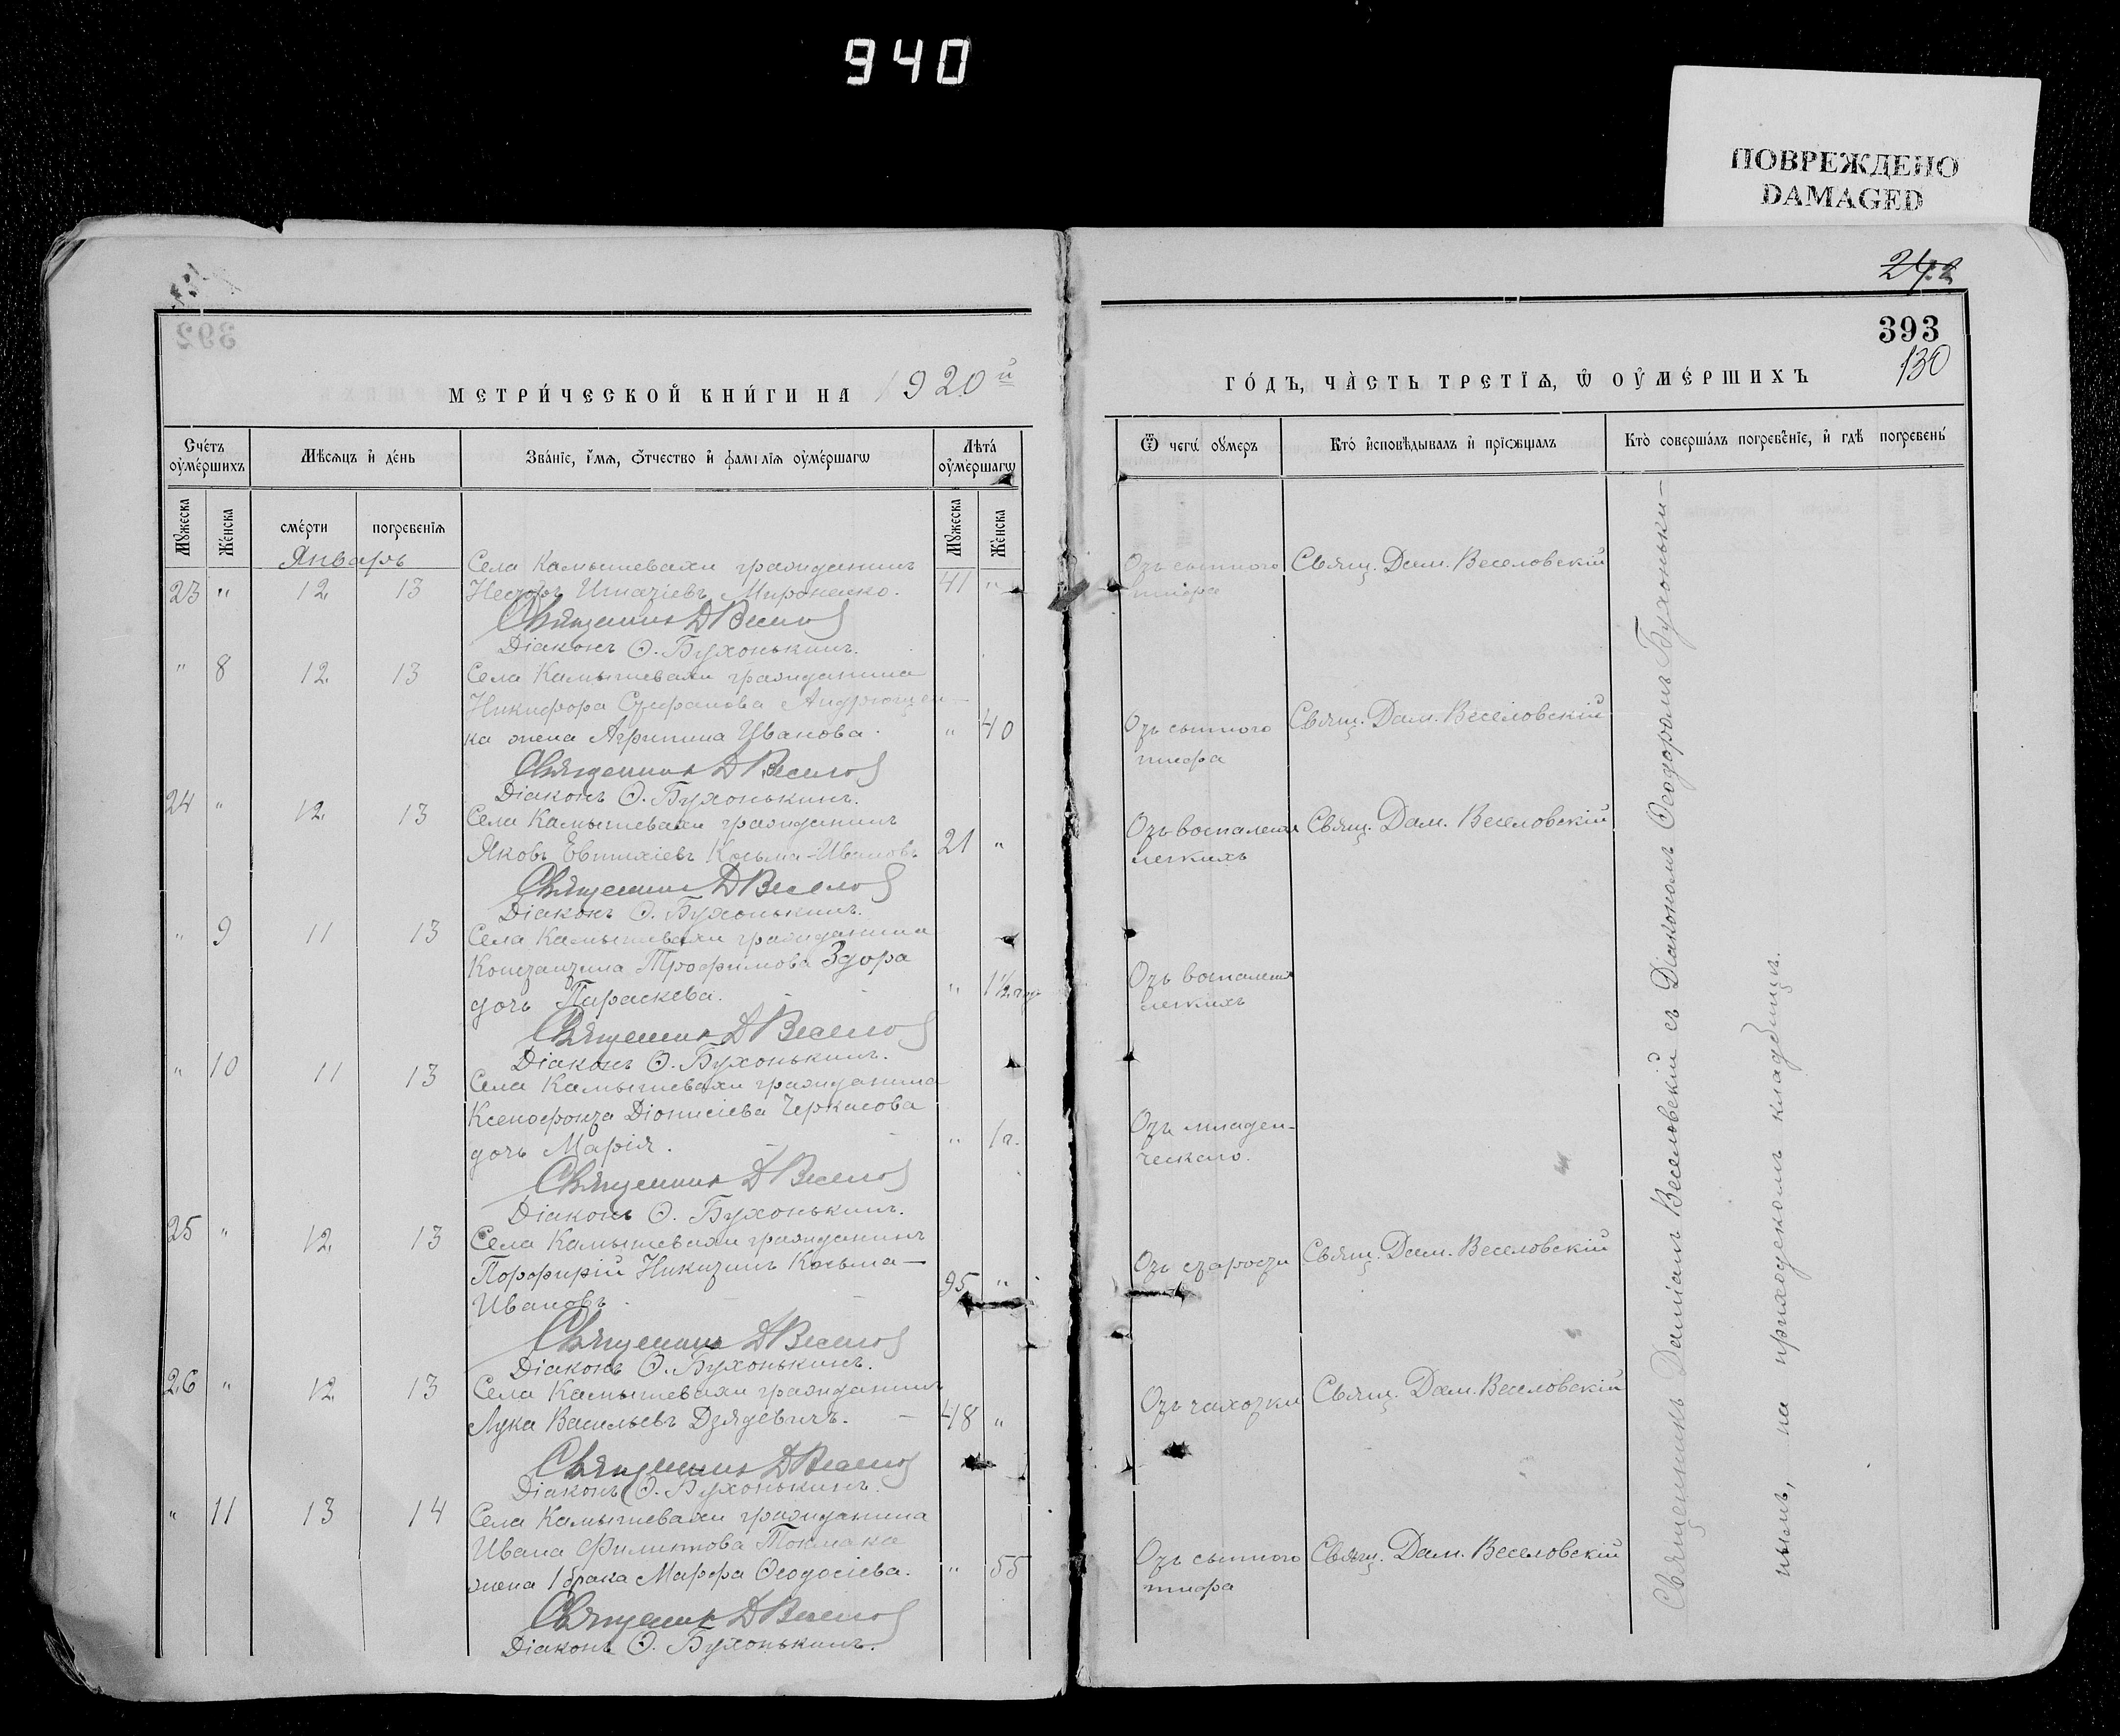 940
ПОВРЕЖДЕНО
DAMAGED
242
393
130
МЕТРИ́ЧЕСКОЙ КНИ́ГИ НА 1920й
ГО́ДЪ, ЧА̀СТЬ ТРЕТІѦ, Ѡ ОУ҆МЕ́РШИХЪ
Сче́тъ оу҆ме́ршихъ
Мѣ́сѧцъ и҆ де́нь
Зва́нїе, и҆́мѧ, ѻ҆́тчество и҆ фамилїѧ оу҆ме́ршагѡ
Лѣта̀ оу҆ме́ршагѡ
Ѿ чегѡ̀ оу҆́меръ
Кто̀ и҆сповѣ́дывалъ и҆ прїѡбща́лъ
Кто̀ соверша́лъ погребе́нїе, и҆ гдѣ̀ погребены̀
Мꙋ́жеска
Же́нска
сме́рти
погребенїѧ
Мꙋ́жеска
Же́нска
Январь
Села Камышевахи гражданинъ
23 " 12 13 Несторъ Игнатіевъ Мироненко. 41 "
Отъ сыпного Свящ. Дам. Веселовскій
тифа
Священникъ Д Весело
Діаконъ Ѳ. Бухонькинъ.
" 8 12. 13 Села Камышевахи гражданина
Никифора Стефанова Андрющен-
ка жена Агрипина Иванова. " 40
Отъ сыпного Свящ. Дам. Веселовскій
тифа
Священникъ Д Весело
Діаконъ Ѳ. Бухонькинъ.
24 " 12. 13 Села Камышевахи гражданинъ
Яковъ Евтихіевъ Косьма-Ивановъ 21 "
Отъ воспаленія Свящ. Дам. Веселовскій
легкихъ
Священникъ Д Весело
Діаконъ Ѳ. Бухонькинъ.
" 9 11 13 Села Камышевахи гражданина
Константина Трофимова Здора
дочь Параскева. " 1½ год
Отъ воспаленія
легкихъ
Священникъ Д Весело
Діаконъ Ѳ. Бухонькинъ.
" 10 11 13 Села Камышевахи гражданина
Ксенофонта Діонисіева Черкасова
дочь Марія. " 1 г.
Отъ младен-
ческаго.
Священникъ Д Весело
Діаконъ Ѳ. Бухонькинъ.
25 " 12. 13 Села Камышевахи гражданинъ
Порфирій Никитинъ Косьма-
Ивановъ. 95 "
Отъ старости Свящ. Дам. Веселовскій
Священникъ Д Весело
Діаконъ Ѳ. Бухонькинъ.
26 " 12 13 Села Камышевахи гражданинъ
Лука Васильевъ Дзядевичъ. 48 "
Отъ чахотки Свящ. Дам. Веселовскій
Священникъ Д Весело
Діаконъ Ѳ. Бухонькинъ.
" 11 13 14 Села Камышевахи гражданина
Ивана Филиппова Токмака
жена 1 брака Марфа Ѳеодосіева. " 55
Отъ сыпного Свящ. Дам. Веселовскій
тифа
Священникъ Д Весело
Діаконъ Ѳ. Бухонькинъ.
Священникъ Даміанъ Веселовскій съ Діакономъ Ѳеодоромъ Бухонькинымъ, на приходскомъ кладбищѣ.